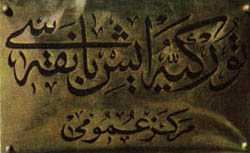 توركیه ایش بانقه سی
مركز عمومی